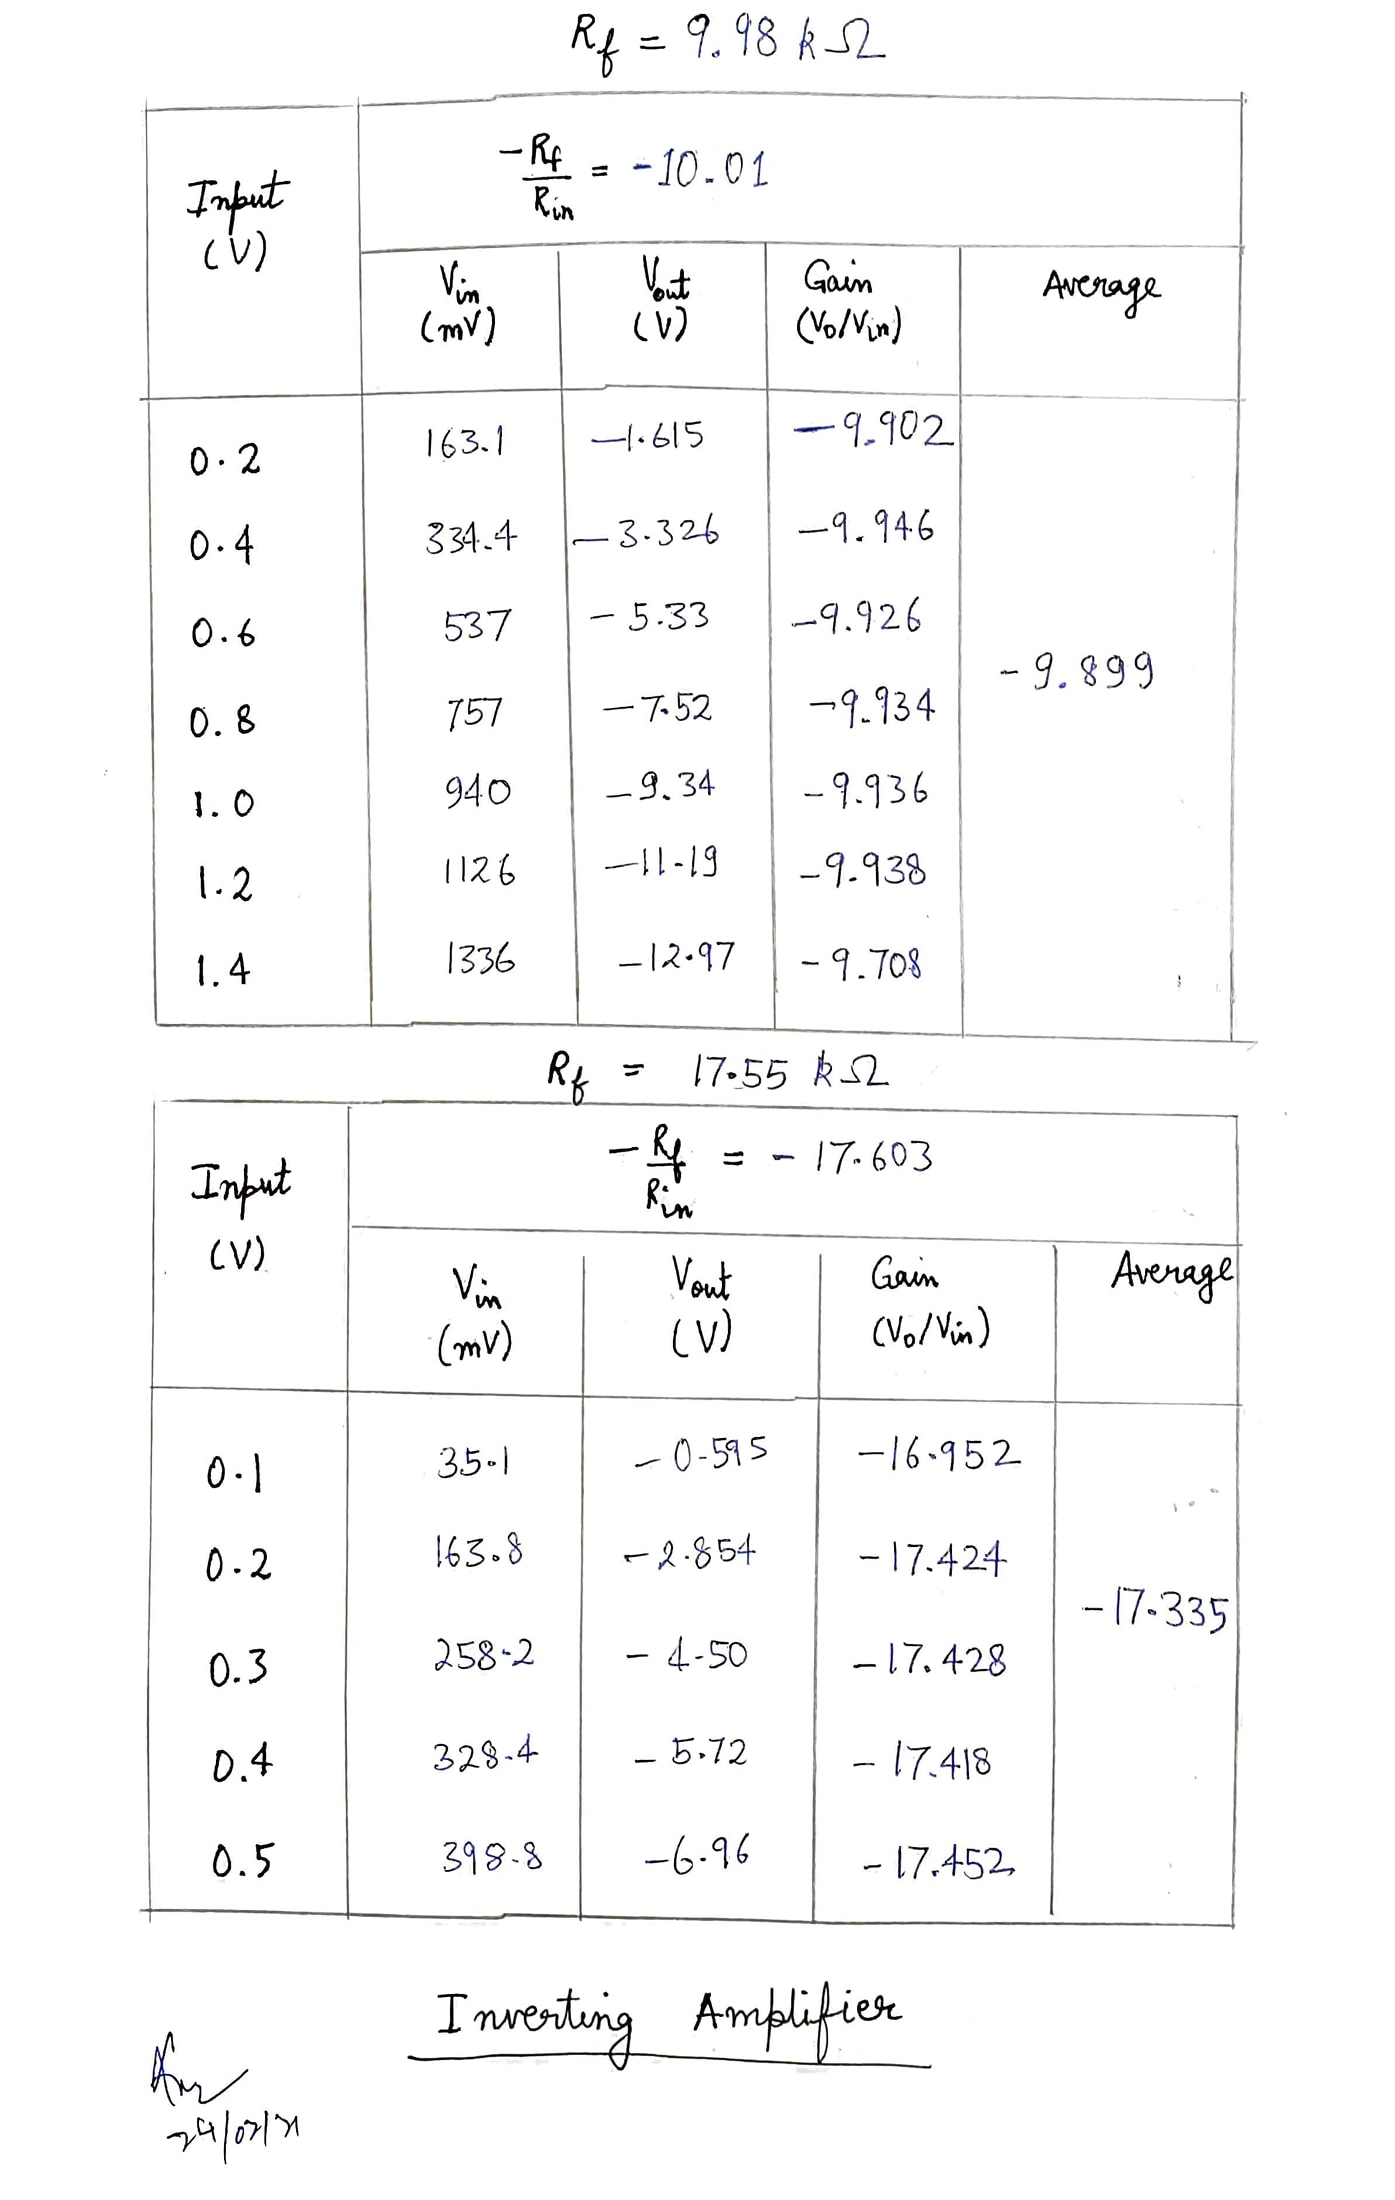 Rf = 9.98 kΩ
Input (V)
-Rf/Rin = -10.01
Vin (mV) Vout (V) Gain (Vo/Vin) Average
0.2 163.1 -1.615 -9.902
0.4 334.4 -3.326 -9.946
0.6 537 -5.33 -9.926
-9.899
0.8 757 -7.52 -9.934
1.0 940 -9.34 -9.936
1.2 1126 -11.19 -9.938
1.4 1336 -12.97 -9.708
Rf = 17.55 kΩ
Input (V)
-Rf/Rin = -17.603
Vin (mV) Vout (V) Gain (Vo/Vin) Average
0.1 35.1 -0.595 -16.952
0.2 163.8 -2.854 -17.424
-17.335
0.3 258.2 -4.50 -17.428
0.4 328.4 -5.72 -17.418
0.5 398.8 -6.96 -17.452
Inverting Amplifier